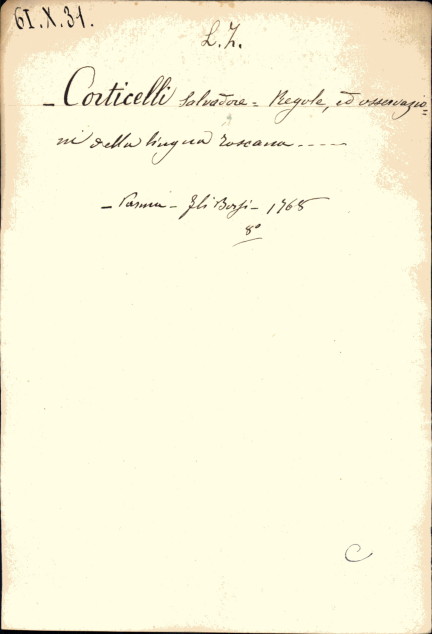 61.X.31.
L.Z.
- Corticelli Salvadore = Regole, ed osservazio=
ni della lingua toscana -----
- Parma - Fli Borsi - 1768
8º
C